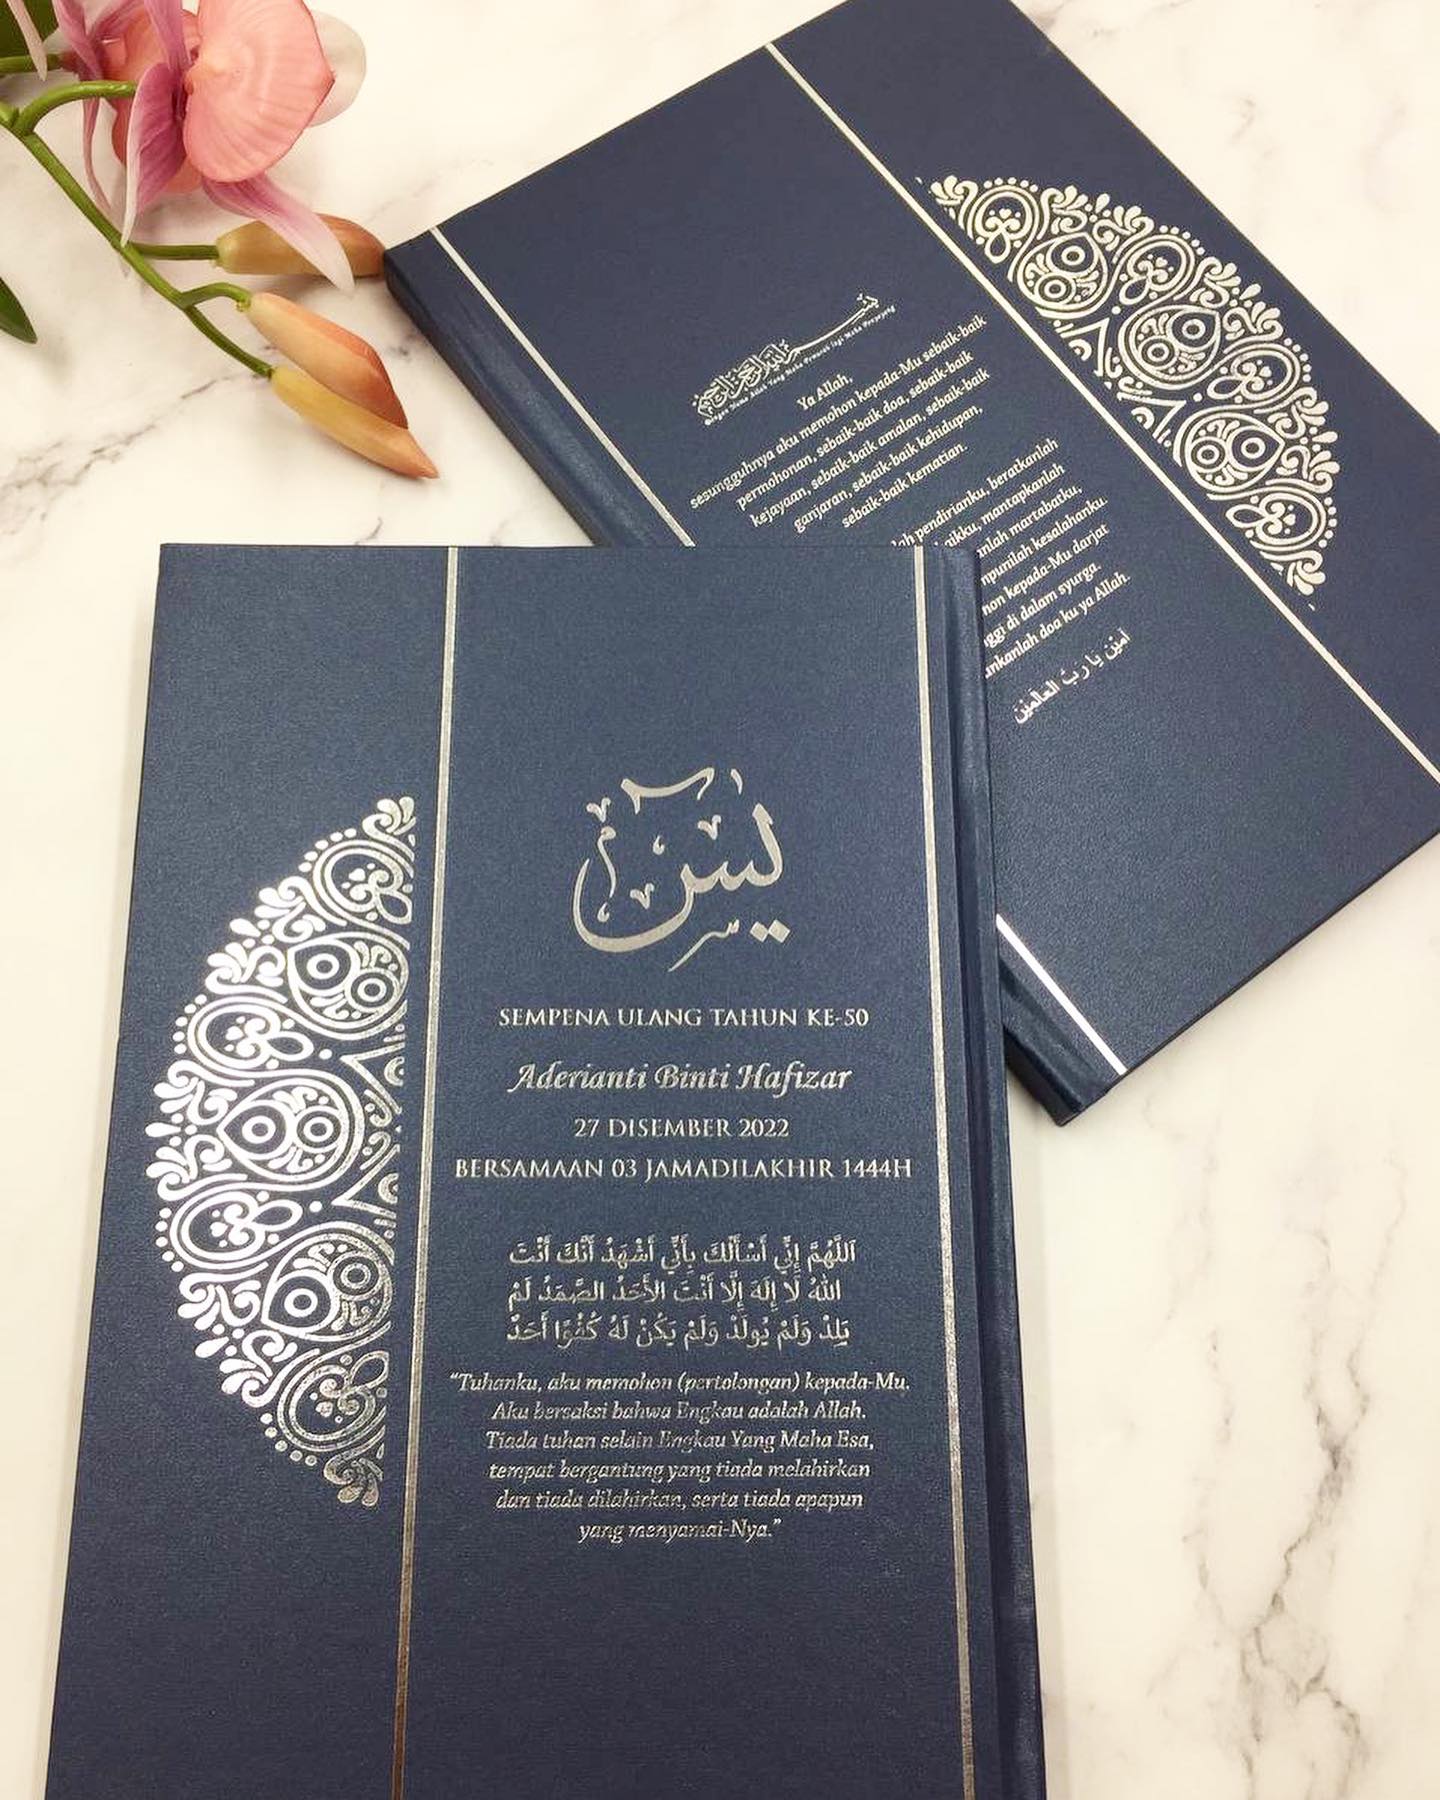 يس
SEMPENA ULANG TAHUN KE-50
Aderianti Binti Hafizar
27 DISEMBER 2022
BERSAMAAN 03 JAMADILAKHIR 1444H
اَللّٰهُمَّ إِنِّي أَسْأَلُكَ بِأَنِّي أَشْهَدُ أَنَّكَ أَنْتَ
اللهُ لَا إِلَهَ إِلَّا أَنْتَ الْأَحَدُ الصَّمَدُ لَمْ
يَلِدْ وَلَمْ يُولَدْ وَلَمْ يَكُنْ لَهُ كُفُوًا أَحَدٌ
“Tuhanku, aku memohon (pertolongan) kepada-Mu.
Aku bersaksi bahwa Engkau adalah Allah.
Tiada tuhan selain Engkau Yang Maha Esa,
tempat bergantung yang tiada melahirkan
dan tiada dilahirkan, serta tiada apapun
yang menyamai-Nya.”
بسم الله الرحمن الرحيم
Dengan Nama Allah Yang Maha Pemurah lagi Maha Penyayang
Ya Allah,
sesungguhnya aku memohon kepada-Mu sebaik-baik
permohonan, sebaik-baik doa, sebaik-baik
kejayaan, sebaik-baik amalan, sebaik-baik
ganjaran, sebaik-baik kehidupan,
sebaik-baik kematian.
pendirianku, beratkanlah
mantapkanlah
martabatku,
kesalahanku.
kepada-Mu darjat
di dalam syurga.
doa ku ya Allah.
اٰمِيْن يَا رَبَّ الْعَالَمِيْن